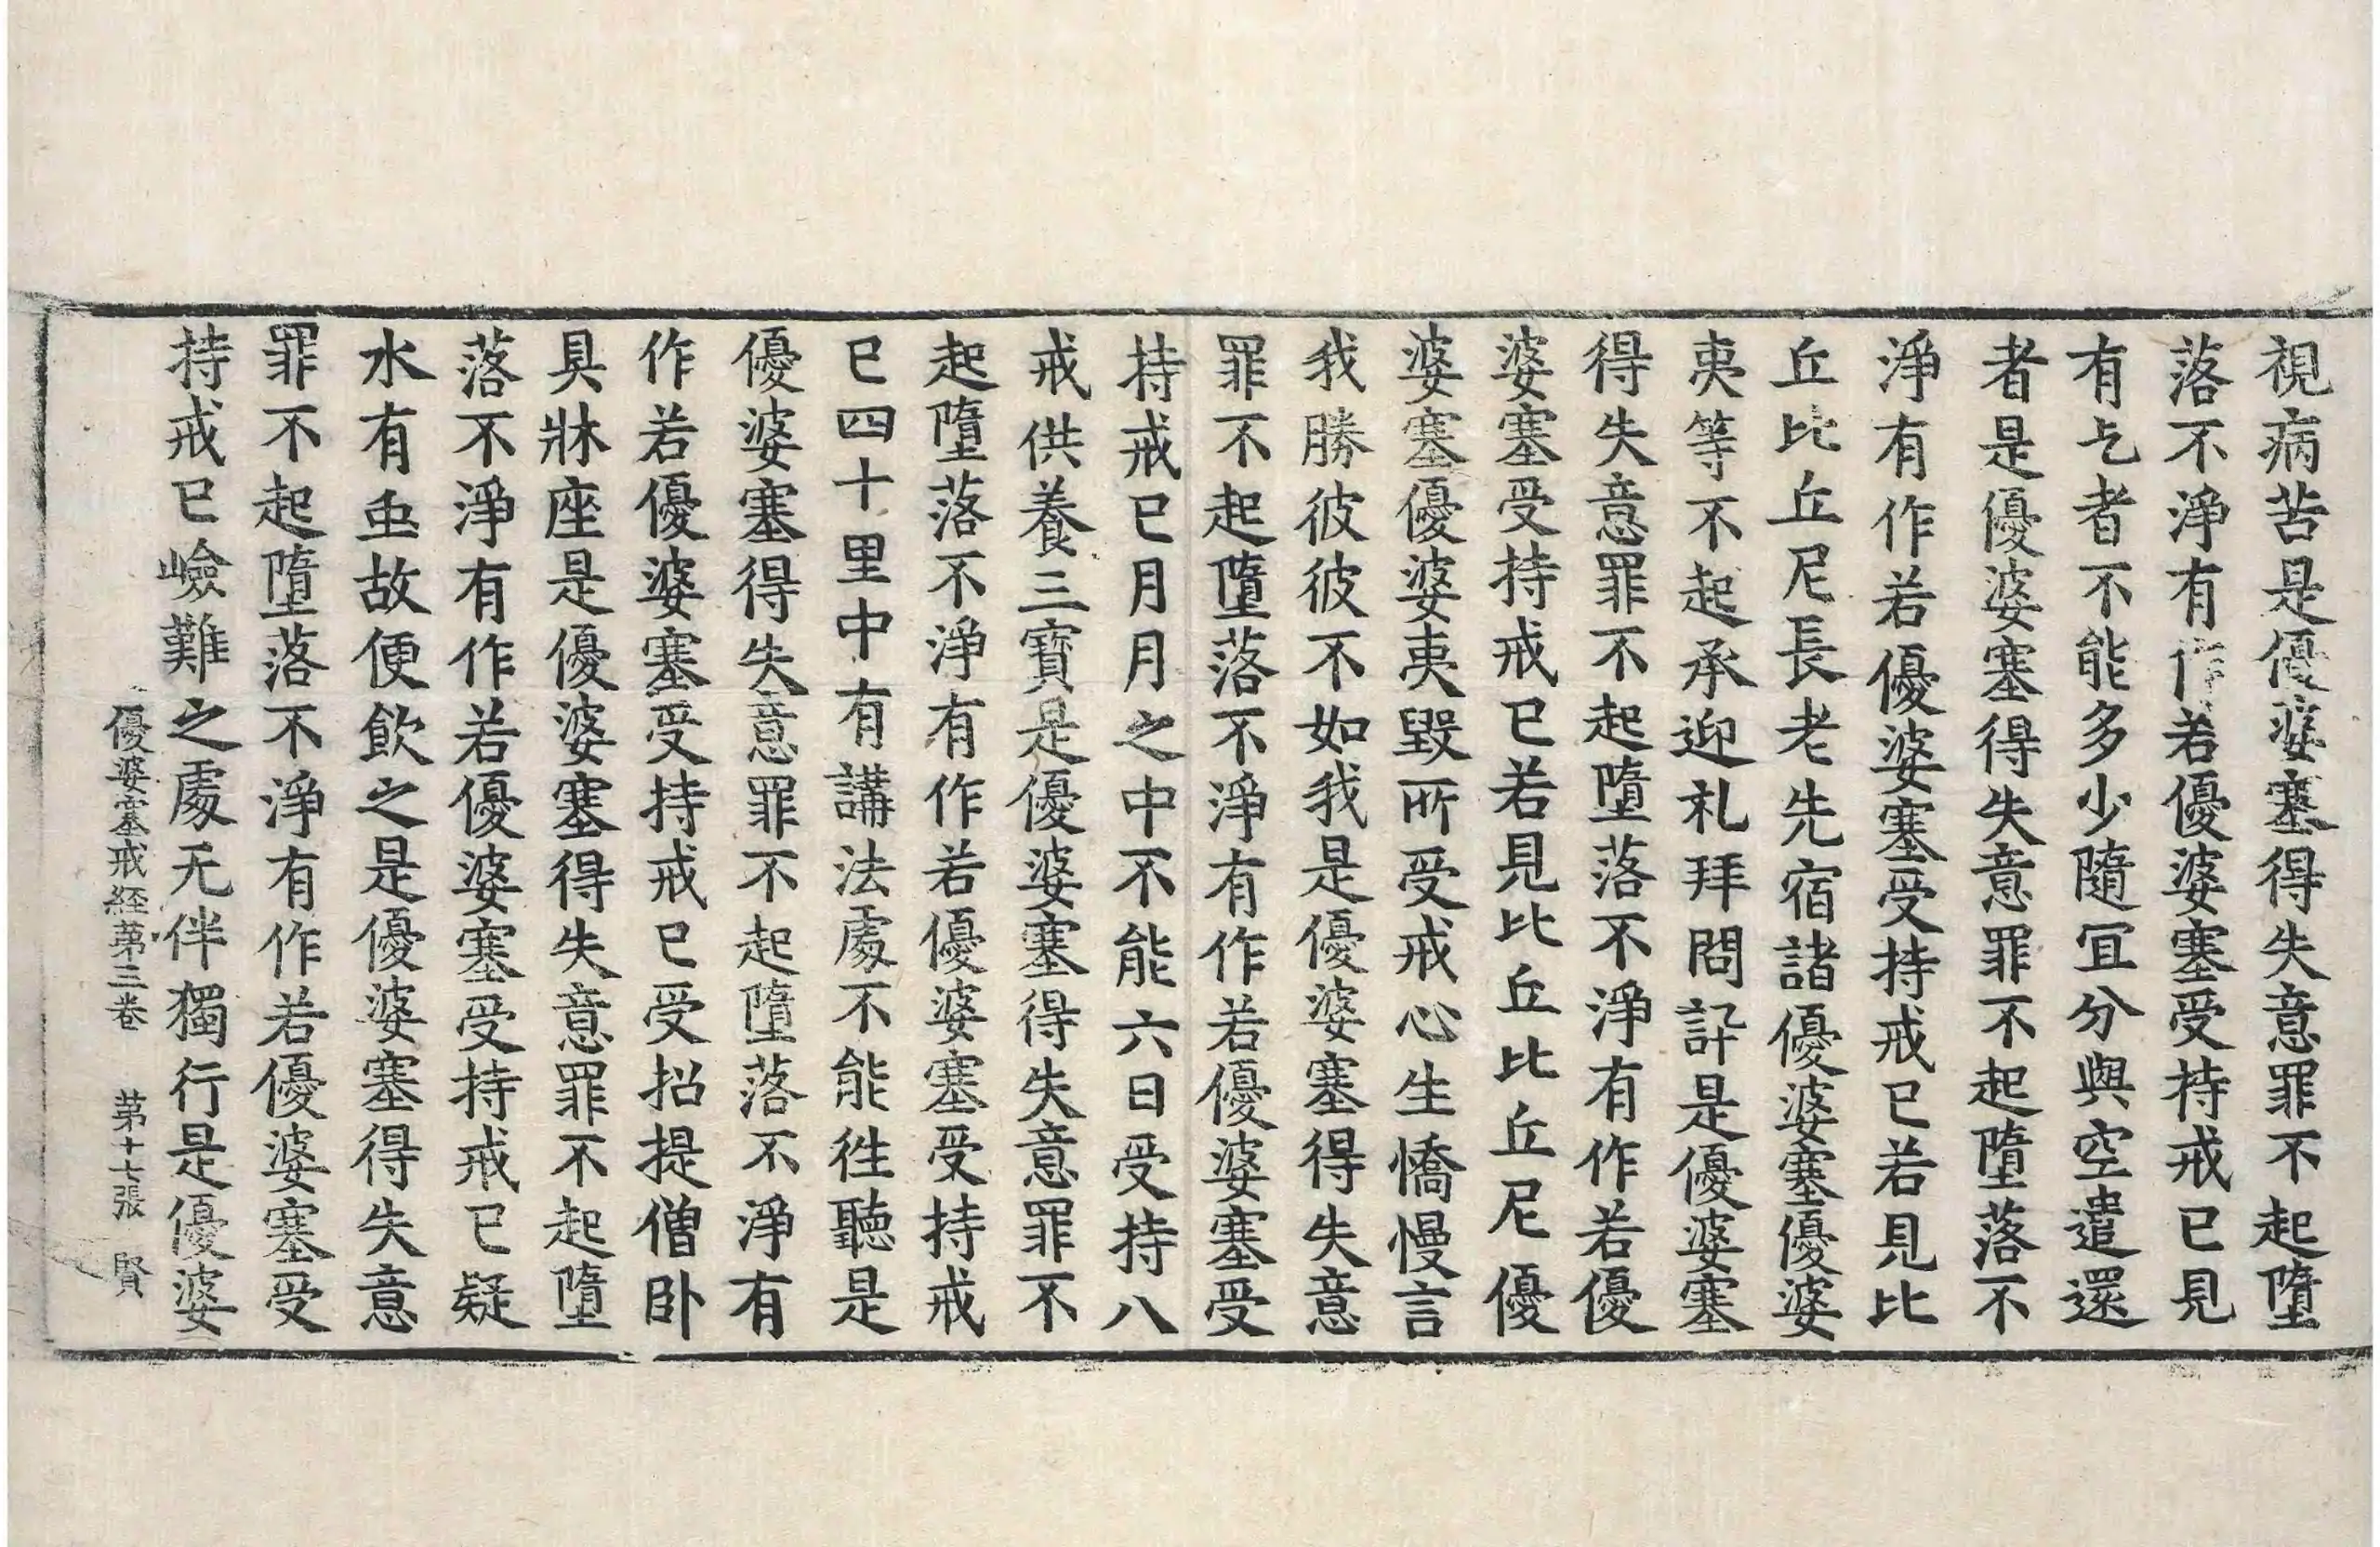 視病苦是優婆塞得失意罪不起墮
落不淨有作若優婆塞受持戒已見
有乞者不能多少隨冝分與空遣還
者是優婆塞得失意罪不起墮落不
淨有作若優婆塞受持戒已若見比
丘比丘尼長老先宿諸優婆塞優婆
夷等不起承迎礼拜問訐是優婆塞
得失意罪不起墮落不淨有作若優
婆塞受持戒已若見比丘比丘尼優
婆塞優婆夷毀所受戒心生憍慢言
我勝彼彼不如我是優婆塞得失意
罪不起墮落不淨有作若優婆塞受
持戒已月月之中不能六日受持八
戒供養三寶是優婆塞得失意罪不
起墮落不淨有作若優婆塞受持戒
已四十里中有講法處不能徃聽是
優婆塞得失意罪不起墮落不淨有
作若優婆塞受持戒已受招提僧卧
具牀座是優婆塞得失意罪不起墮
落不淨有作若優婆塞受持戒已疑
水有䖝故便飲之是優婆塞得失意
罪不起墮落不淨有作若優婆塞受
持戒已嶮難之處无伴獨行是優婆
優婆塞戒経苐三卷 苐十七張 賢